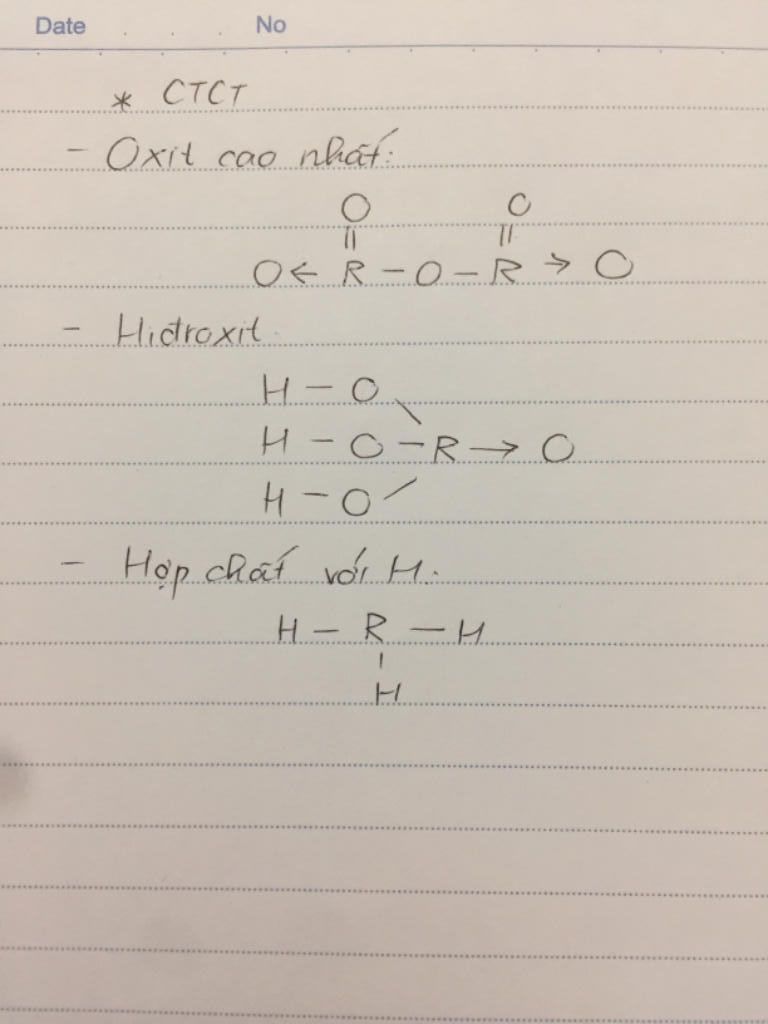 Date . . . No
* CTCT
- Oxit cao nhất:
O O
|| ||
O ← R - O - R → O
- Hiđroxit
H - O \
H - O - R → O
H - O /
- Hợp chất với H.
H - R - H
|
H